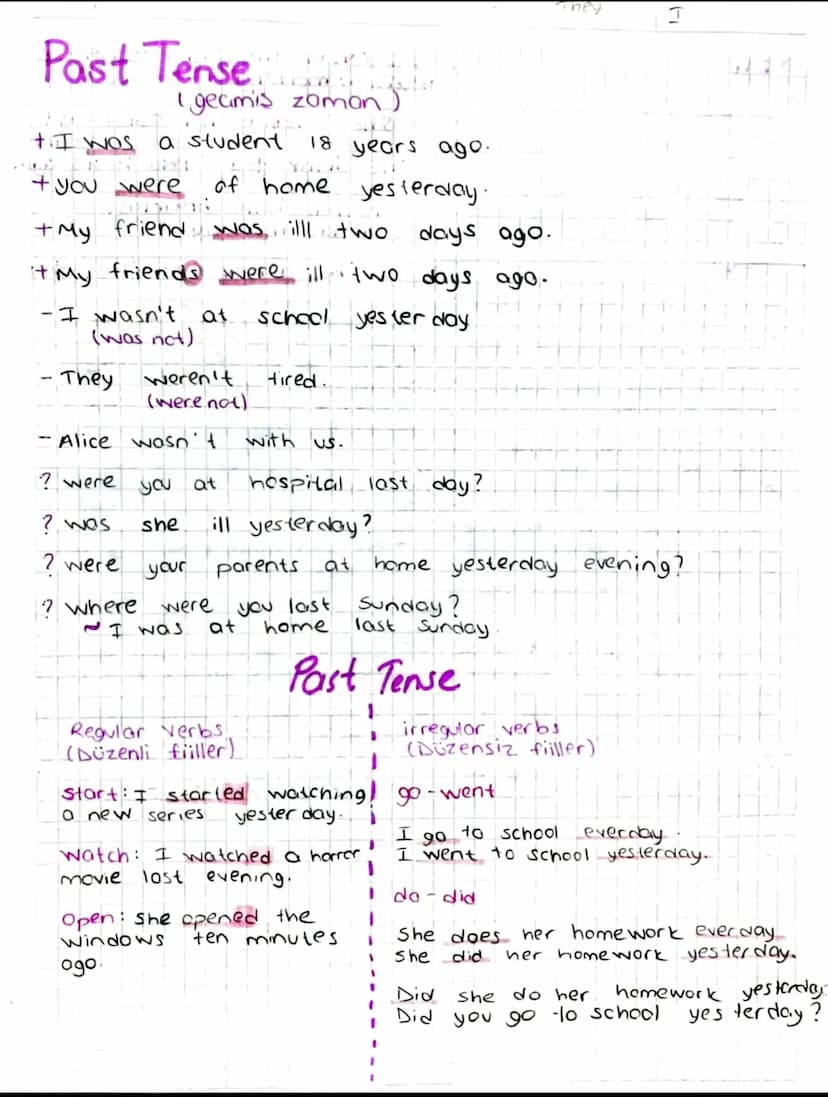 They I
Past Tense
(gecmis zaman)
+ I was a student 18 years ago.
+ you were at home yesterday.
+ My friend was illl two days ago.
+ My friends were ill two days ago.
- I wasn't at school yesterday
(was not)
- They weren't tired.
(were not)
- Alice wasn't with us.
? were you at hospital last day?
? was she ill yesterday?
? were your parents at home yesterday evening?
? where were you last Sunday?
~ I was at home last Sunday.
Past Tense
Regular verbs
(Düzenli fiiller)
Start: I started watching
a new series yesterday.
Watch: I watched a horror
movie last evening.
Open: She opened the
windows ten minutes
ago.
irregular verbs
(Düzensiz fiiller)
go - went
I go to school everday.
I went to school yesterday.
do - did
She does her homework everday
She did her homework yesterday.
Did she do her homework yesterday
Did you go to school yesterday?